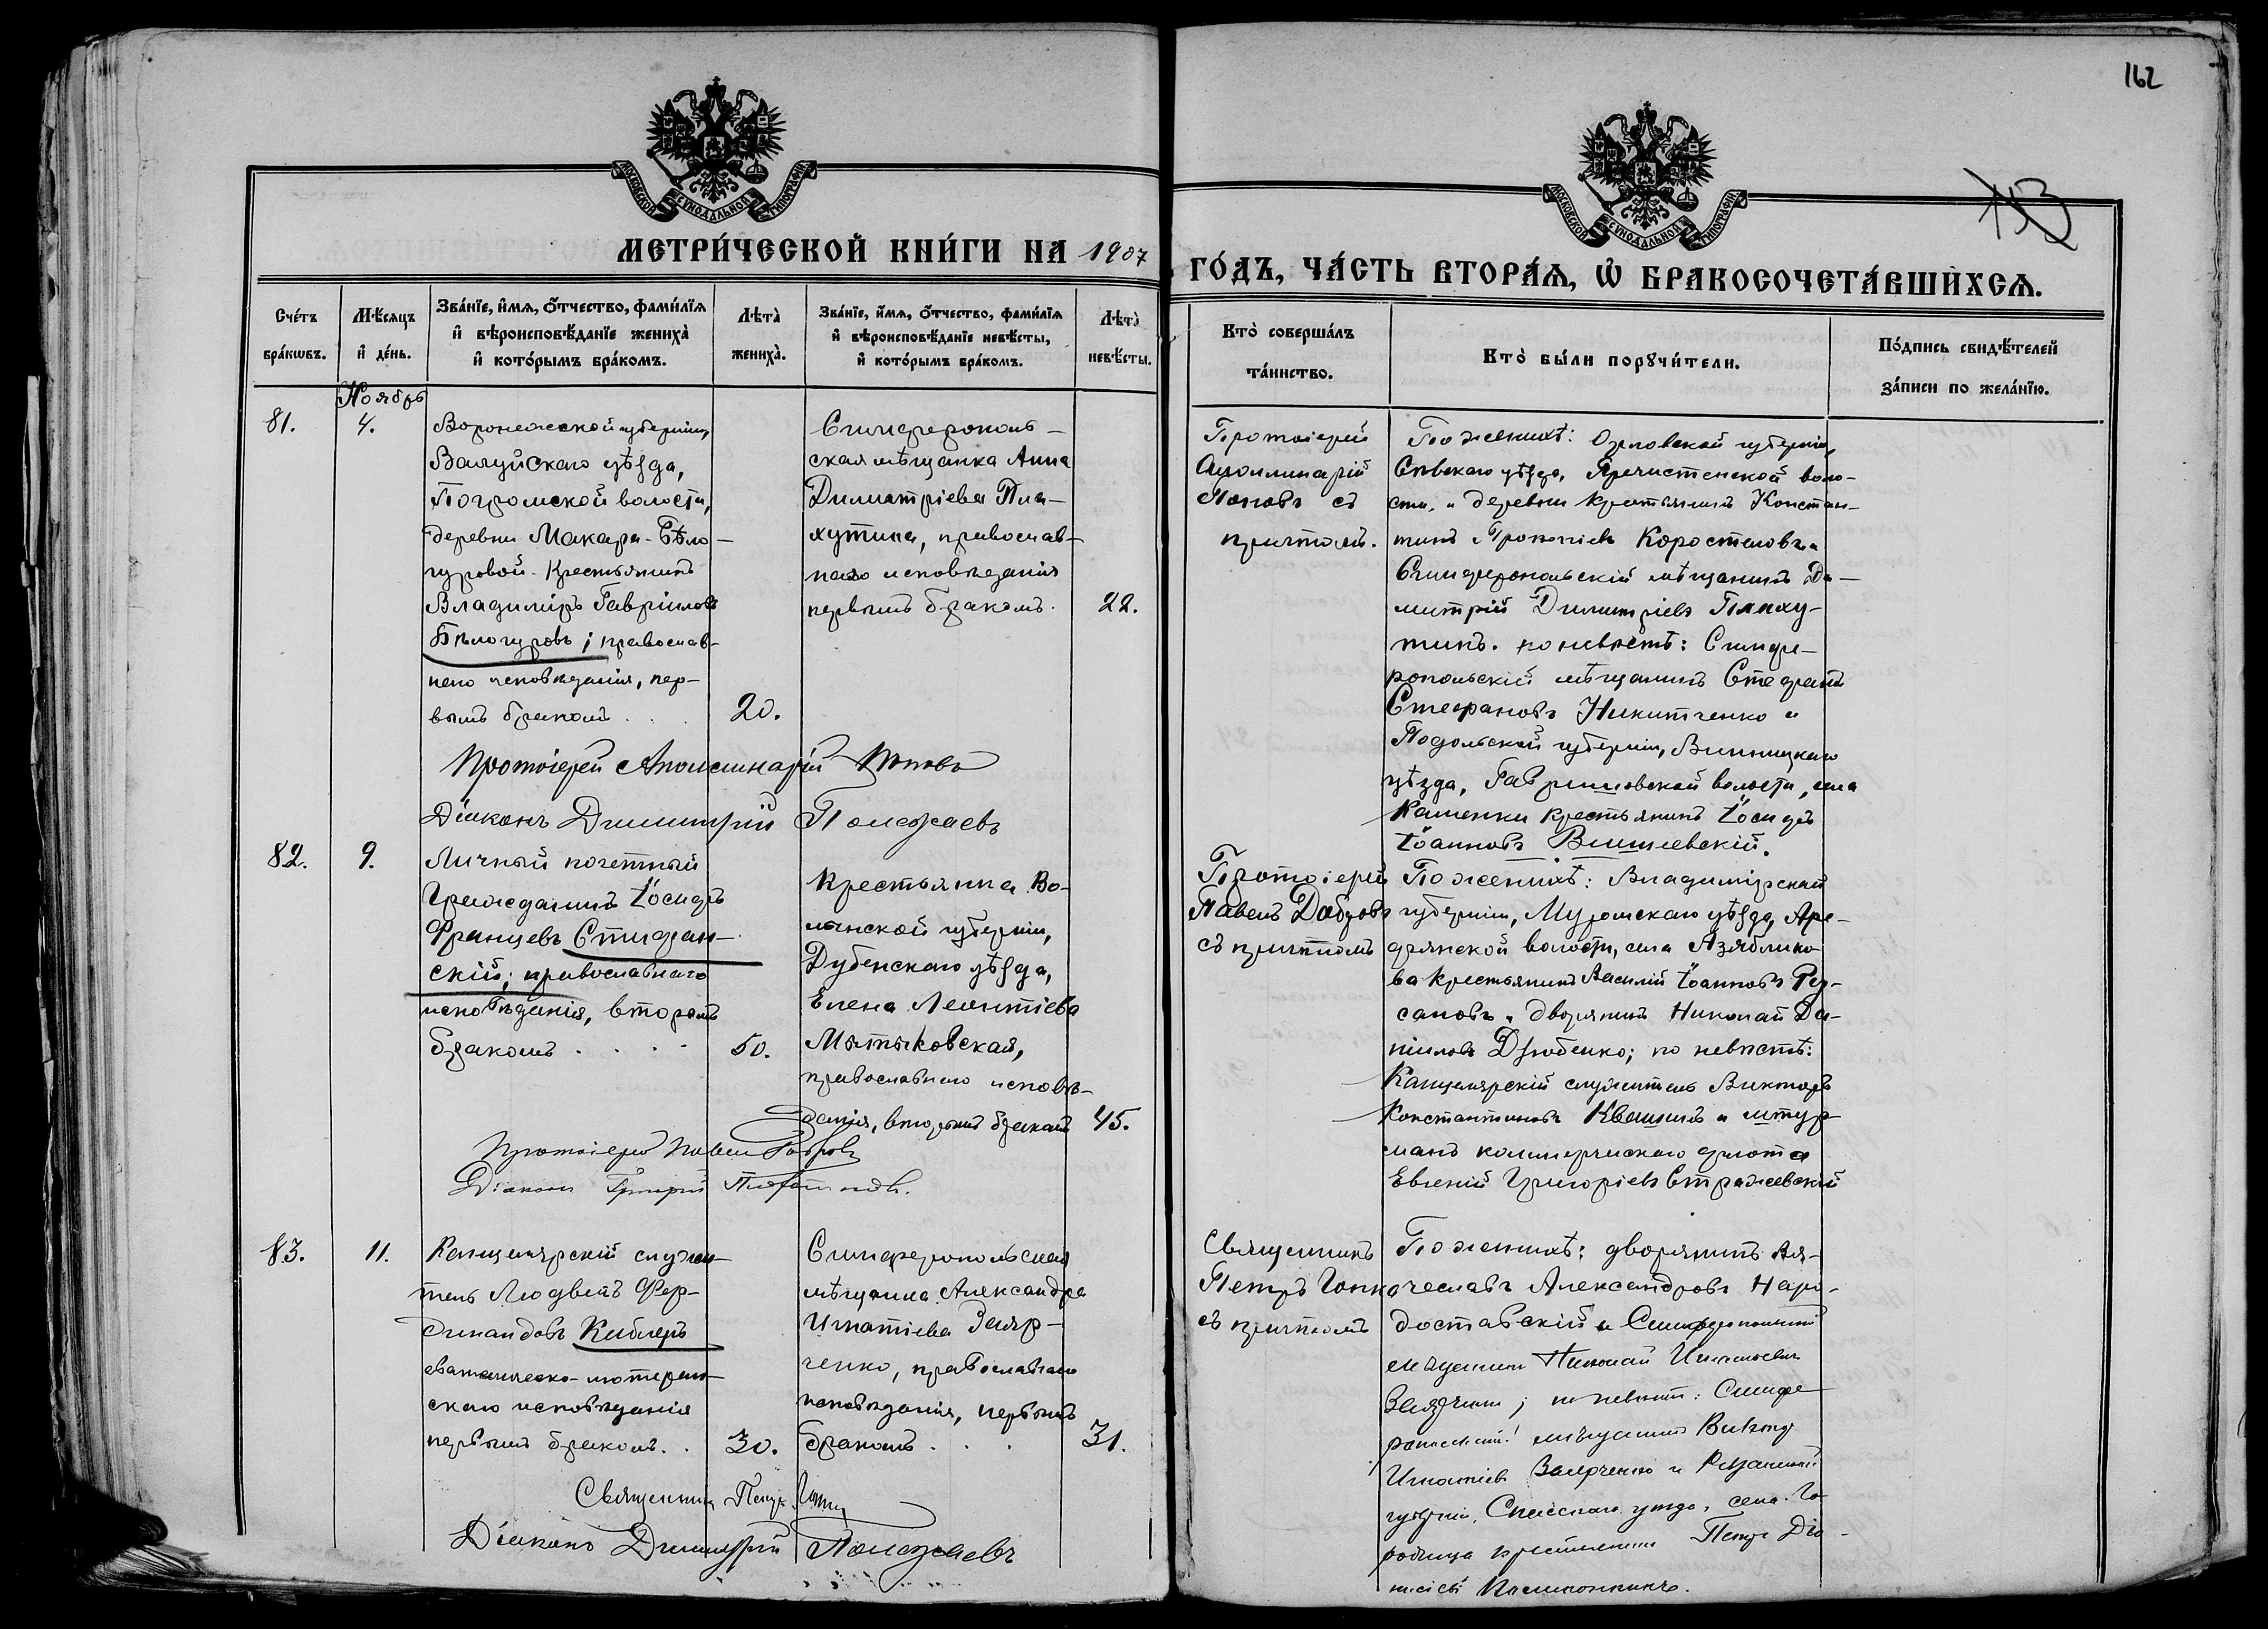 162
193
МОСКОВСКОЙ СѴНОДАЛЬНОЙ ТИПОГРАФІИ
МОСКОВСКОЙ СѴНОДАЛЬНОЙ ТИПОГРАФІИ
МЕТРИ́ЧЕСКОЙ КНИ́ГИ НА 1907
ГО́ДЪ, ЧА́СТЬ ВТОРА́Ѧ, Ѡ҆ БРАКОСОЧЕТА́ВШИХСѦ.
Сче́тъ бра́кѡвъ.
Мѣ́сѧцъ и҆ де́нь.
Зва́нїе, и҆́мѧ, ѻ҆́тчество, фами́лїѧ
и҆ вѣроисповѣ́данїе жениха̀
и҆ кото́рымъ бра́комъ.
Лѣта̀ жениха̀.
Зва́нїе, и҆́мѧ, ѻ҆́тчество, фами́лїѧ
и҆ вѣроисповѣ́данїе невѣ́сты,
и҆ кото́рымъ бра́комъ.
Лѣта̀ невѣ́сты.
Кто̀ соверша́лъ
та́инство.
Кто̀ бы́ли порꙋчи́тели.
По́дпись свидѣ́телей
за́писи по жела́нїю.
Ноябрь
81.
4.
Воронежской губерніи,
Валуйскаго уѣзда,
Погромской волости,
деревни Макара-Бѣло-
гуровой крестьянинъ
Владиміръ Гавріиловъ
Бѣлогуровъ; православ-
наго исповѣданія, пер-
вымъ бракомъ . .
20.
Симферополь-
ская мѣщанка Анна
Димитріева Пла-
хутина, православ-
наго исповѣданія
первымъ бракомъ.
22.
Протоіерей
Аполлинарій
Поповъ съ
причтомъ.
По женихѣ: Орловской губерніи,
Сѣвскаго уѣзда, Пречистенской воло-
сти, и деревни крестьянинъ Констан-
тинъ Прокопіевъ Коростеловъ и
Симферопольскій мѣщанинъ Ди-
митрій Димитріевъ Плаху-
тинъ. по невѣстѣ: Симфе-
ропольскій мѣщанинъ Стефанъ
Стефановъ Никитченко и
Подольской губерніи, Винницкаго
уѣзда, Гавришовской волости, села
Каменки крестьянинъ Іосифъ
Іоанновъ Вишневскій.
Протоіерей Аполлинарій Поповъ
Діаконъ Димитрій Полежаевъ
82.
9.
Личный почетный
Гражданинъ Іосифъ
Францевъ Стифан-
скій; православнаго
исповѣданія, вторымъ
бракомъ . . . .
50.
Крестьянка Во-
лынской губерніи,
Дубенскаго уѣзда,
Елена Леонтіева
Мятьковская,
православнаго исповѣ-
данія, вторымъ бракомъ
45.
Протоіерей
Павелъ Добровъ
съ причтомъ
По женихѣ: Владимірской
губерніи, Муромскаго уѣзда, Аре-
финской волости, села Азяблико-
ва крестьянинъ Василій Іоанновъ Ру-
сановъ и дворянинъ Николай Да-
ніиловъ Дзюбенко; по невѣстѣ:
Канцелярскій служитель Викторъ
Константиновъ Квашинъ и штур-
манъ коммерческаго флота
Евгеній Григоріевъ Стражевскій
Протоіерей Павелъ Добровъ
Діаконъ Григорій
83.
11.
Канцелярскій служи-
тель Людвигъ Фер-
динандовъ Киблеръ
евангелическо-лютеран-
скаго исповѣданія
первымъ бракомъ. .
30.
Симферопольская
мѣщанка Александра
Игнатіева Заяр-
ченко, православнаго
исповѣданія, первымъ
бракомъ . . .
31.
Священникъ
Петръ Гопко
съ причтомъ
По женихѣ: дворянинъ Вя-
чеславъ Александровъ Наро-
доставскій и Симферопольскій
мѣщанинъ Николай Игнатьевъ
Заярченко; по невѣстѣ: Симфе
ропольскій мѣщанинъ Викторъ
Игнатіевъ Заярченко и Рязанской
губерніи, Спасскаго уѣзда, села Го-
родища крестьянинъ Петръ
Священникъ Петръ Гопко
Діаконъ Димитрій Полежаевъ